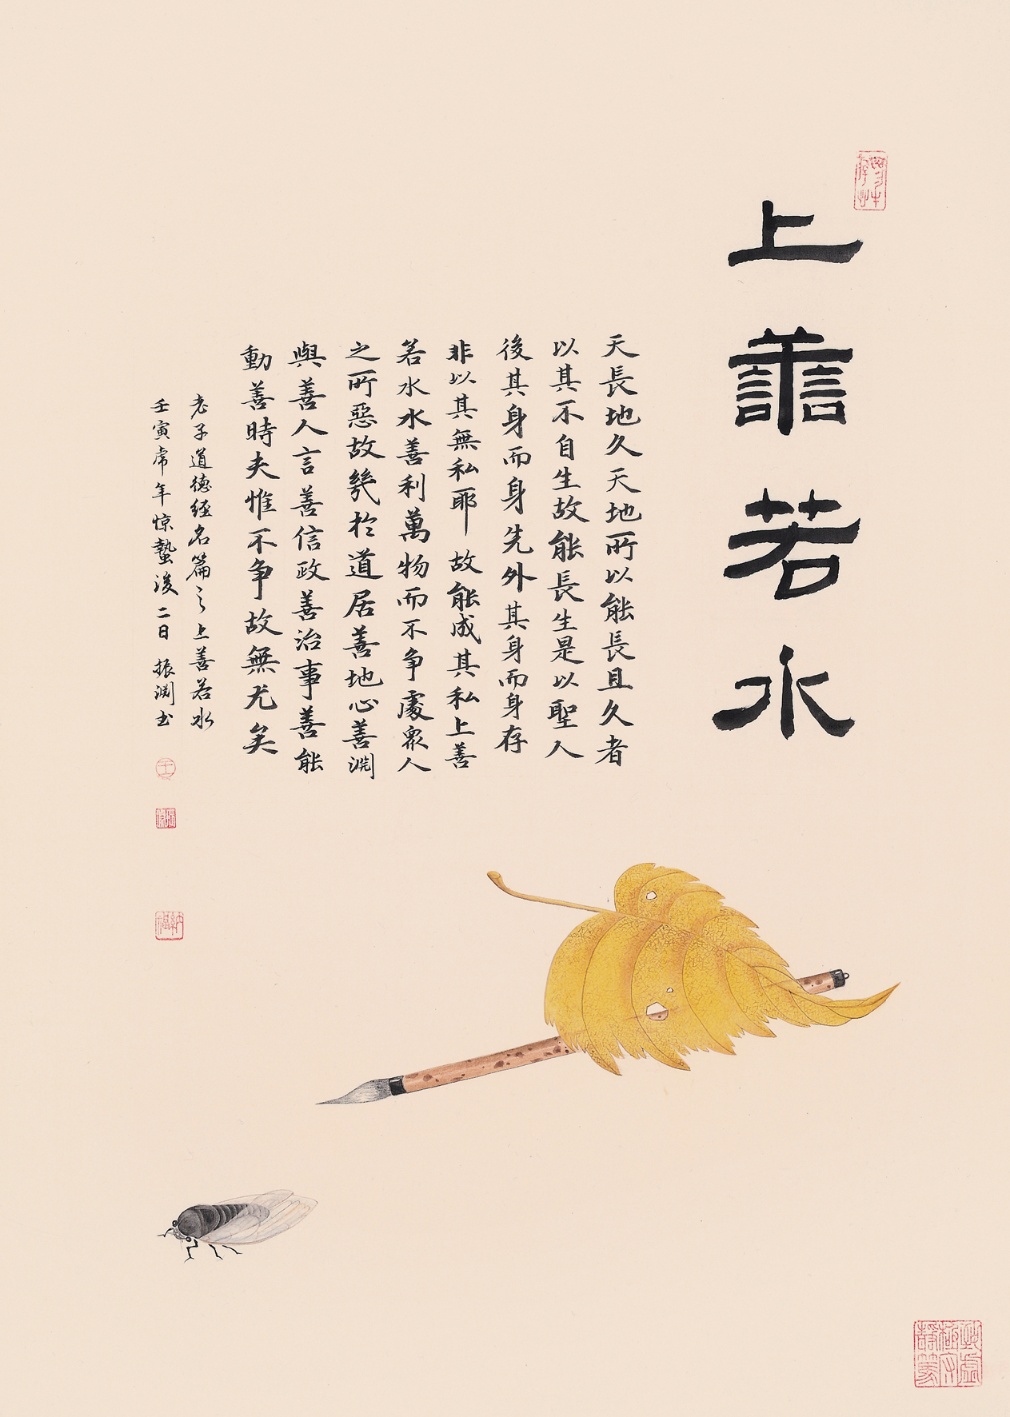 上善若水
天長地久天地所以能長且久者
以其不自生故能長生是以聖人
後其身而身先外其身而身存
非以其無私耶故能成其私上善
若水水善利萬物而不争處衆人
之所惡故幾於道居善地心善渊
與善人言善信政善治事善能
動善時夫惟不争故無尤矣
老子道德經名篇之上善若水
壬寅虎年惊蟄後二日振渊书